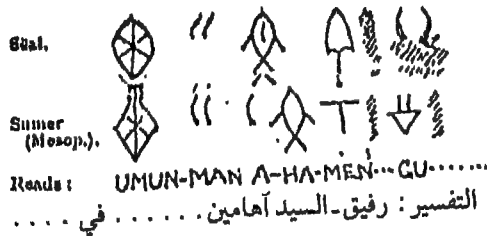 Seal.
Sumer
(Mesop.).
Reads: UMUN-MAN A-HA-MEN...GU.......
التفسير: رفيق-السيد آهامين....... في ....